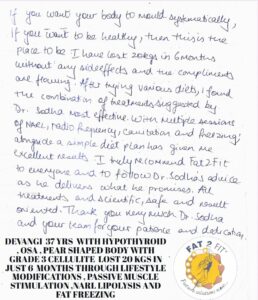 If you want your body to mould systematically,
if you want to be healthy, then this is the
place to be I have lost 20kgs in 6 months
without any side effects and the compliments
are flowing. After trying various diets, I found
the combination of treatments suggested by
Dr. Sodha most effective. With multiple sessions
of NARL, radio frequency, cavitation and freezing
alongside a simple diet plan has given me
excellent results I truly recommend Fat 2 Fit
to everyone and to follow Dr. Sodha's advice
as he delivers what he promises. All
treatments and scientific, safe and result
oriented. Thank you very much Dr. Sodha
and your team for your patience and dedication.
DEVANGI 37 YRS WITH HYPOTHYROID
, OSA , PEAR SHAPED BODY WITH
GRADE 3 CELLULITE LOST 20 KGS IN
JUST 6 MONTHS THROUGH LIFESTYLE
MODIFICATIONS , PASSIVE MUSCLE
STIMULATION ,NARL LIPOLYSIS AND
FAT FREEZING
FAT 2 FIT